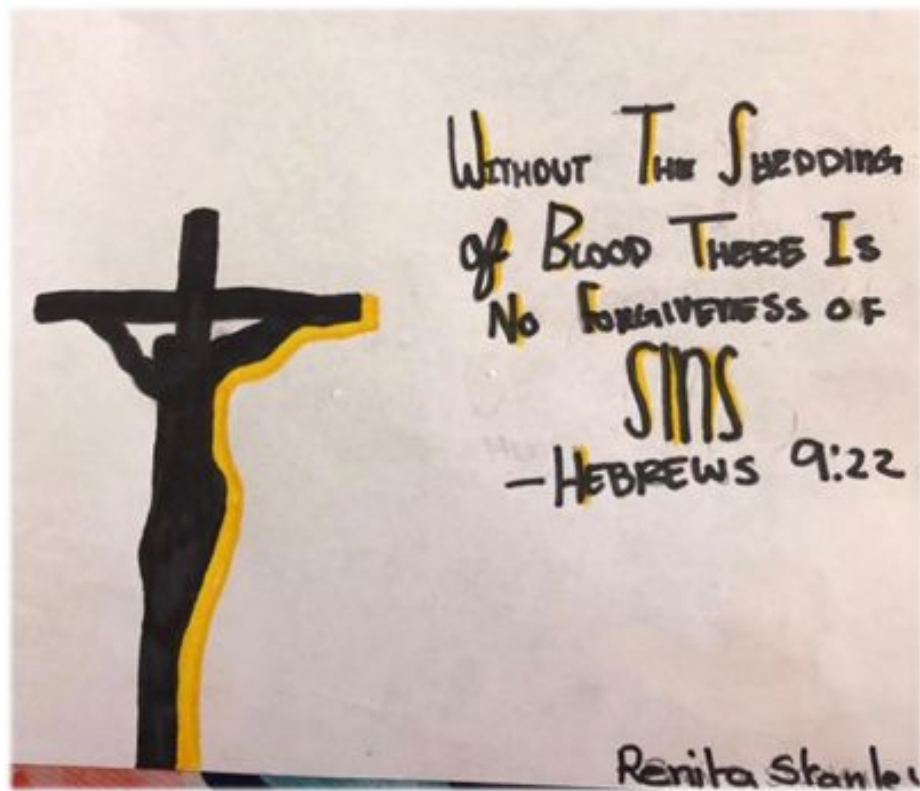 Without The Shedding
of Blood There Is
No Forgiveness of
SINS
-Hebrews 9:22
Renita Stanley